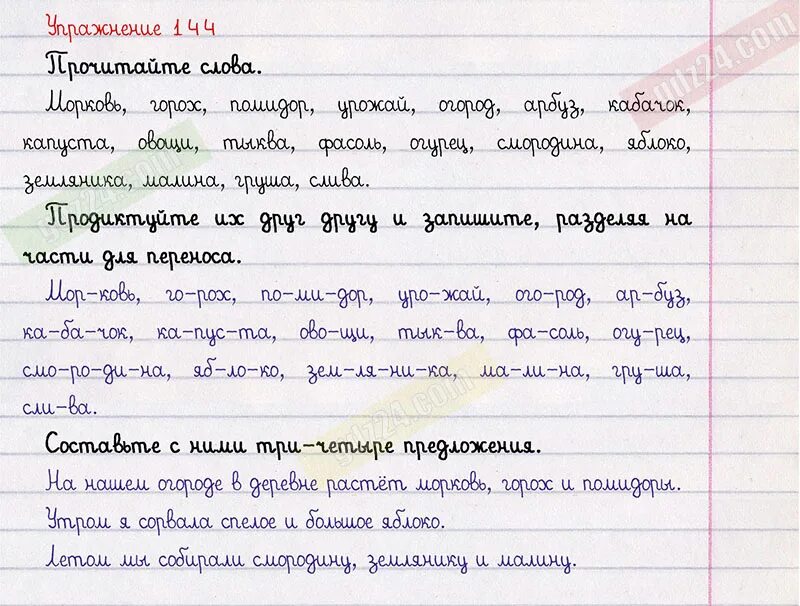 Упражнение 144
Прочитайте слова.
Морковь, горох, помидор, урожай, огород, арбуз, кабачок,
капуста, овощи, тыква, фасоль, огурец, смородина, яблоко,
земляника, малина, груша, слива.
Продиктуйте их друг другу и запишите, разделяя на
части для переноса.
Мор-ковь, го-рох, по-ми-дор, уро-жай, ого-род, ар-буз,
ка-ба-чок, ка-пус-та, ово-щи, тык-ва, фа-соль, огу-рец,
смо-ро-ди-на, яб-ло-ко, зем-ля-ни-ка, ма-ли-на, гру-ша,
сли-ва.
Составьте с ними три-четыре предложения.
На нашем огороде в деревне растёт морковь, горох и помидоры.
Утром я сорвала спелое и большое яблоко.
Летом мы собирали смородину, землянику и малину.
gdz24.com
gdz24.com
gdz24.com